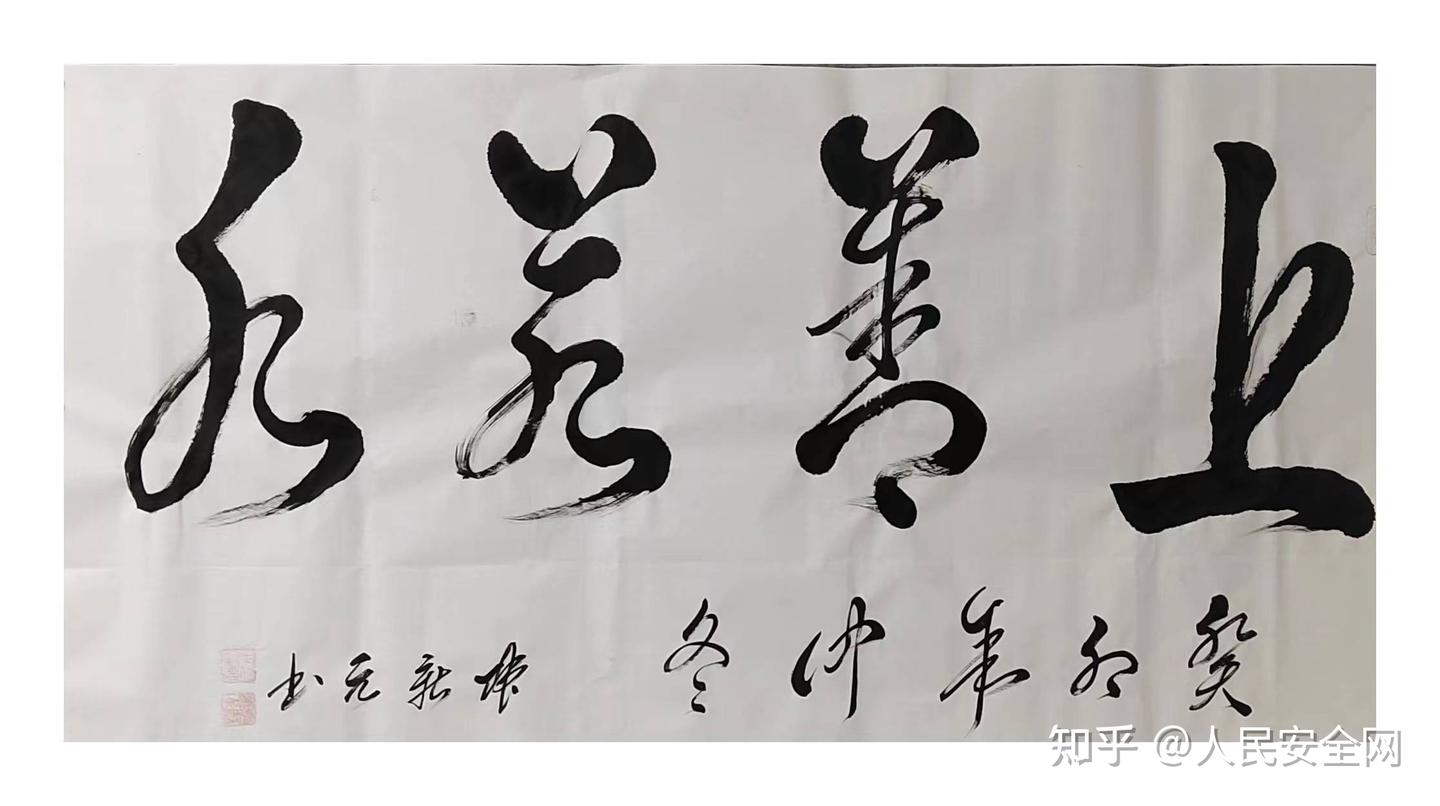 上善若水
癸卯年仲冬
新元书
知乎 @人民安全网